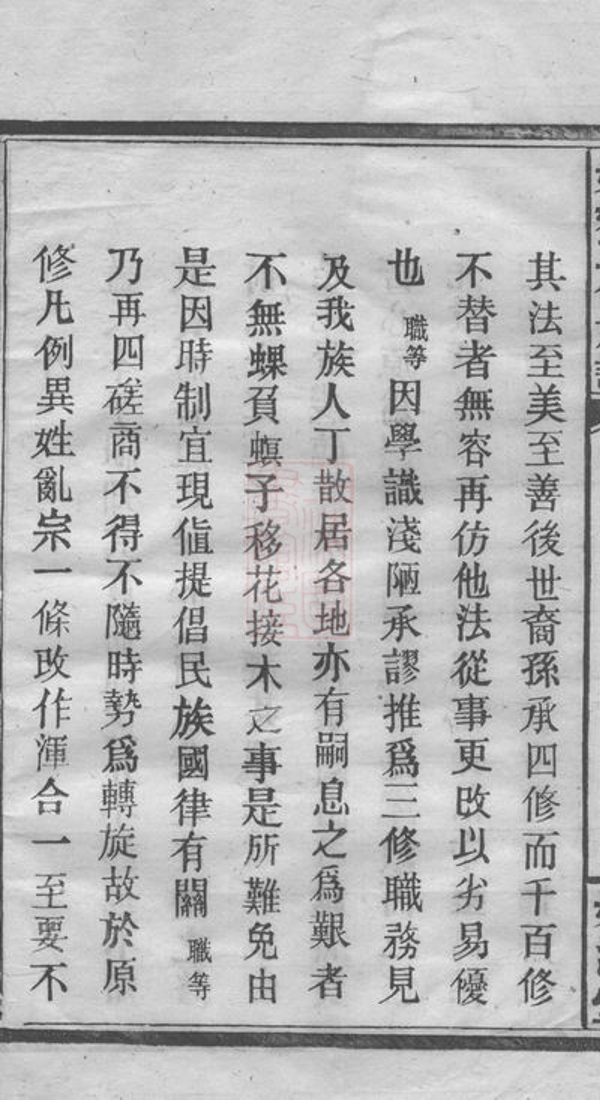 其法至美至善後世裔孫承四修而千百修
不替者無容再仿他法從事更改以劣易優
也職等因學識淺陋承謬推為三修職務見
及我族人丁散居各地亦有嗣息之為艱者
不無螺負螟子移花接木之事是所難免由
是因時制宜現值提倡民族國律有關職等
乃再四磋商不得不隨時勢為轉旋故於原
修凡例異姓亂宗一條改作渾合一至要不